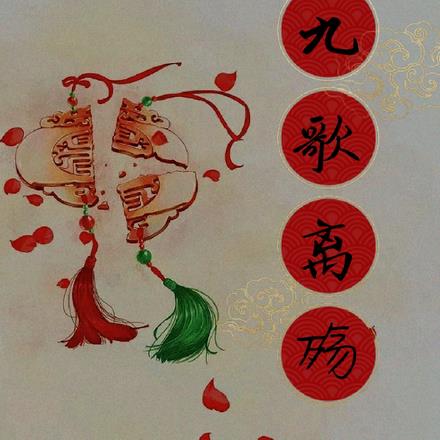 九歌离殇